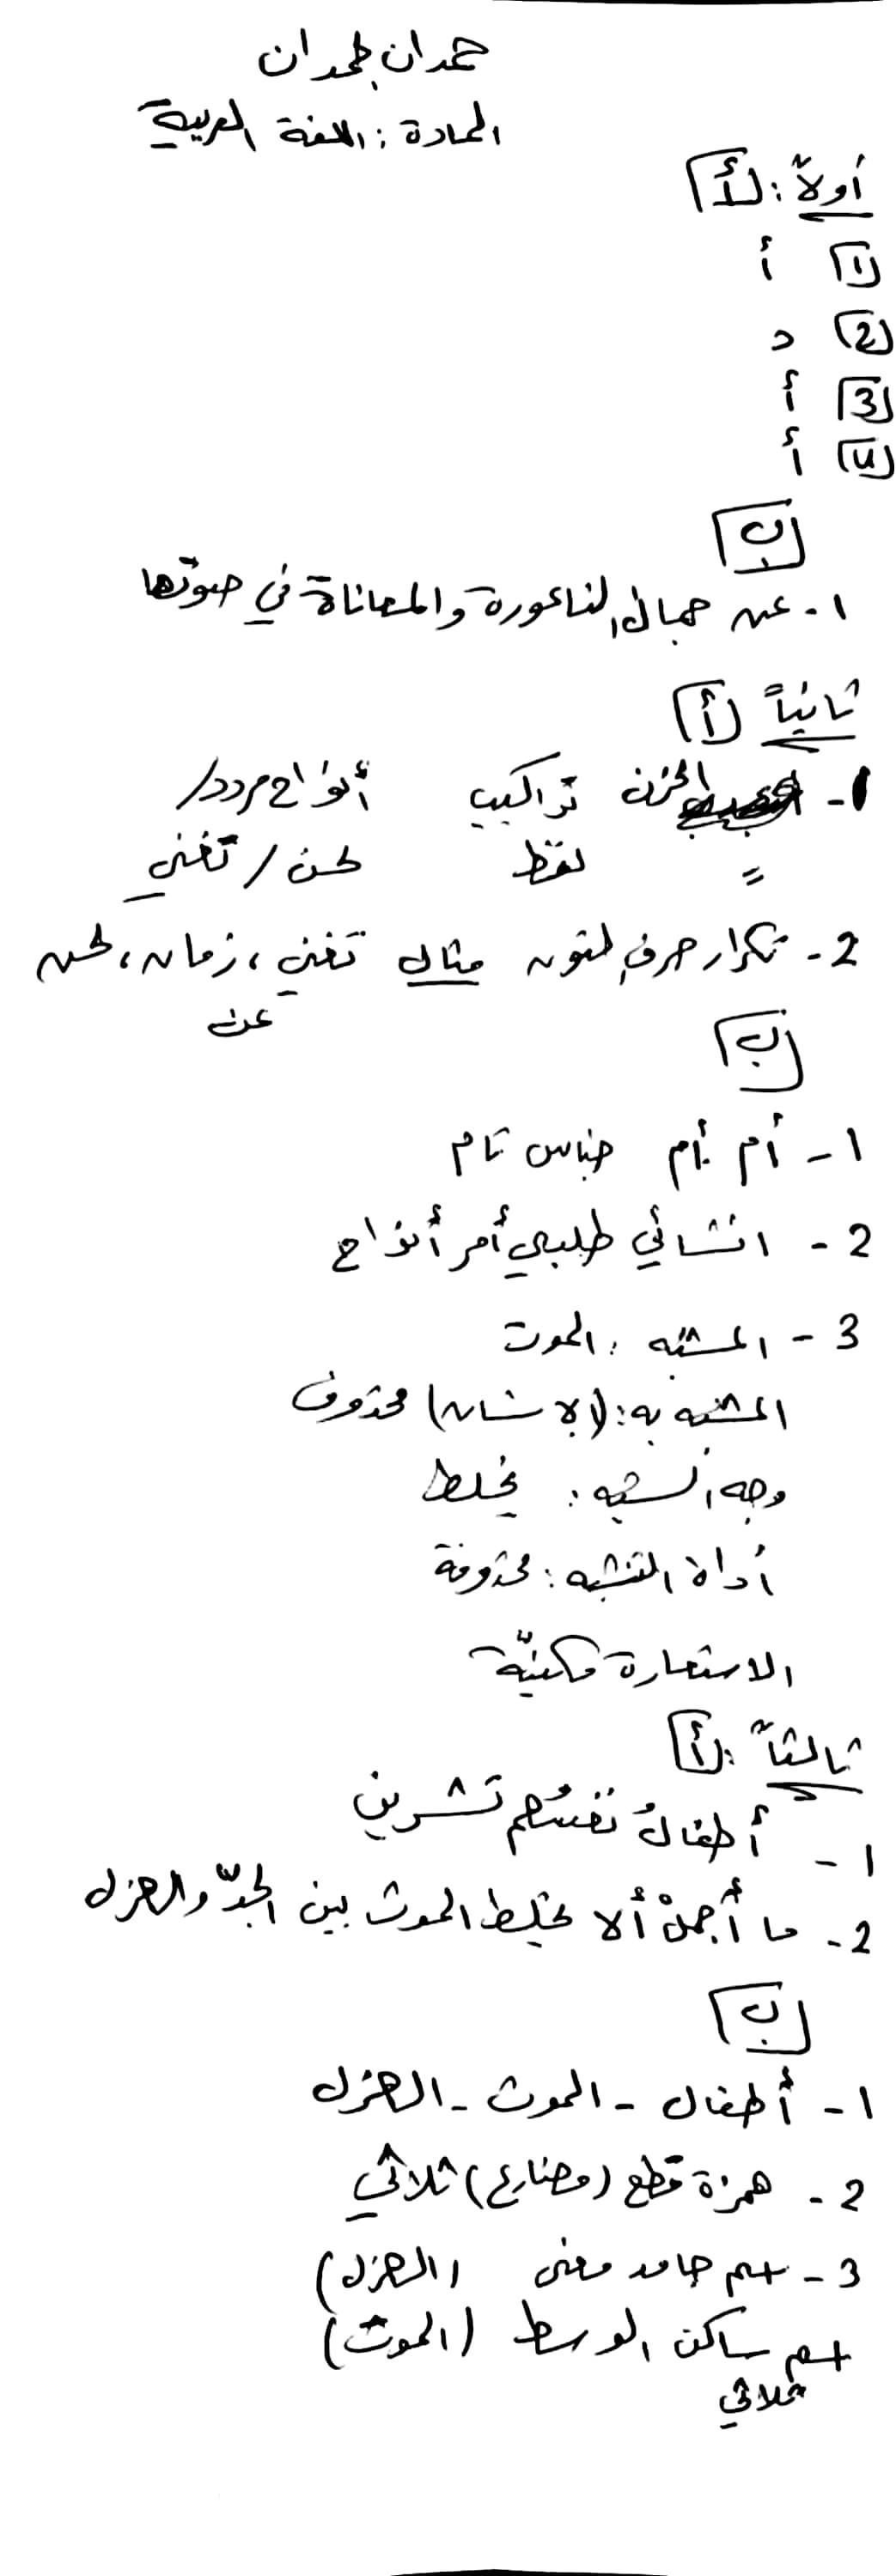 حمدان حمدان
المادة : اللغة العربية
أولاً : أ
1 أ
2 د
3 أ
4 أ
ب
1- عن جمال الناعورة والمعاناة في صوتها
ثانياً أ
1- الحزن تراكيب أنواح مردد/
= لفظ لحن / تغني
2- تكرار حرف النون مثال تغني ، زمان ، لحن
عن
ب
1- أم أم جناس تام
2- انشائي طلبي أمر أنواح
3- المشبه : الموت
المشبه به : (الإنسان) محذوف
وجه الشبه : يخلط
أداة التشبيه : محذوفة
الاستعارة مكنيّة
ثالثاً : أ
1- أطفالُ نفسُهم تشرين
2- ما أجملْ ألا يخلط الموت بين الجدّ والهزل
ب
1- أطفال - الموت - الهزل
2- همزة قطع (مضارع) ثلاثي
3- اسم جامد معنى (الهزل)
اسم ساكن الوسط (الموت)
ثلاثي